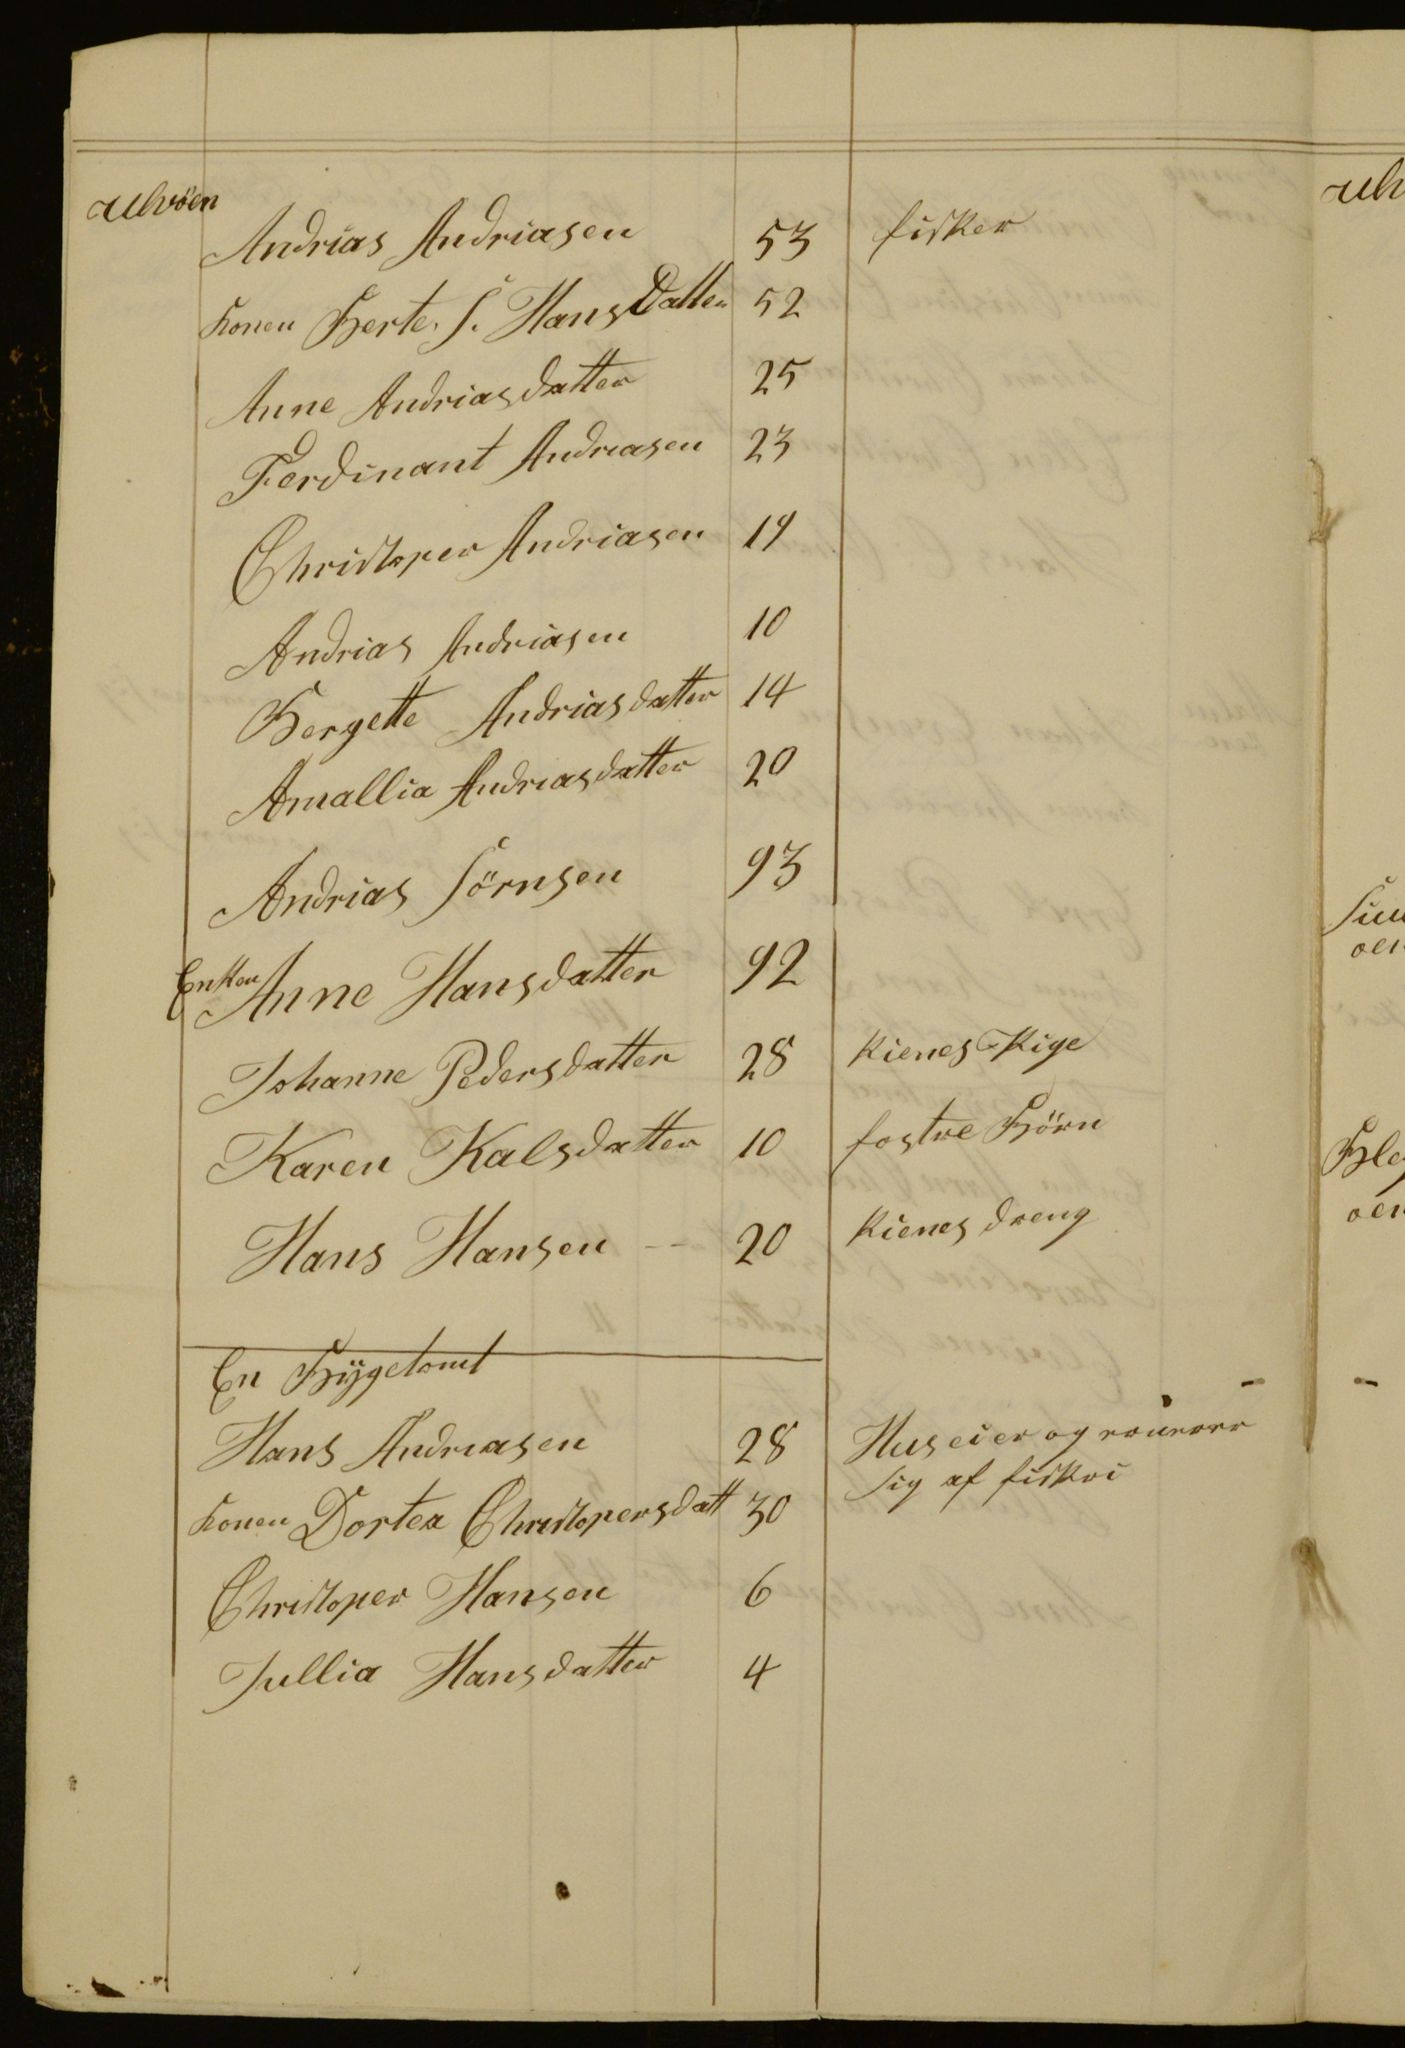 Ulvöen
Andrias Andriasen 53 fisker
Konen Berte. S. HansDatter 52
Anne Andriasdatter 25
Ferdinant Andriasen 23
Christoper Andriasen 19
Andrias Andriasen 10
Bergette Andriasdatter 14
Amallia Andriasdatter 20
Andrias Sörnsen 93
Enken Anne Hansdatter 92
Johanne Pedersdatter 28 kienes Pige
Karen Kalsdatter 10 fostre Börn
Hans Hansen -- 20 kienes dreng
En Bÿgetomt
Hans Andriasen 28 Huseier og
sig af fiskri
Konen Dortea Christopersdatt 30
Christoper Hansen 6
Jullia Hansdatter 4